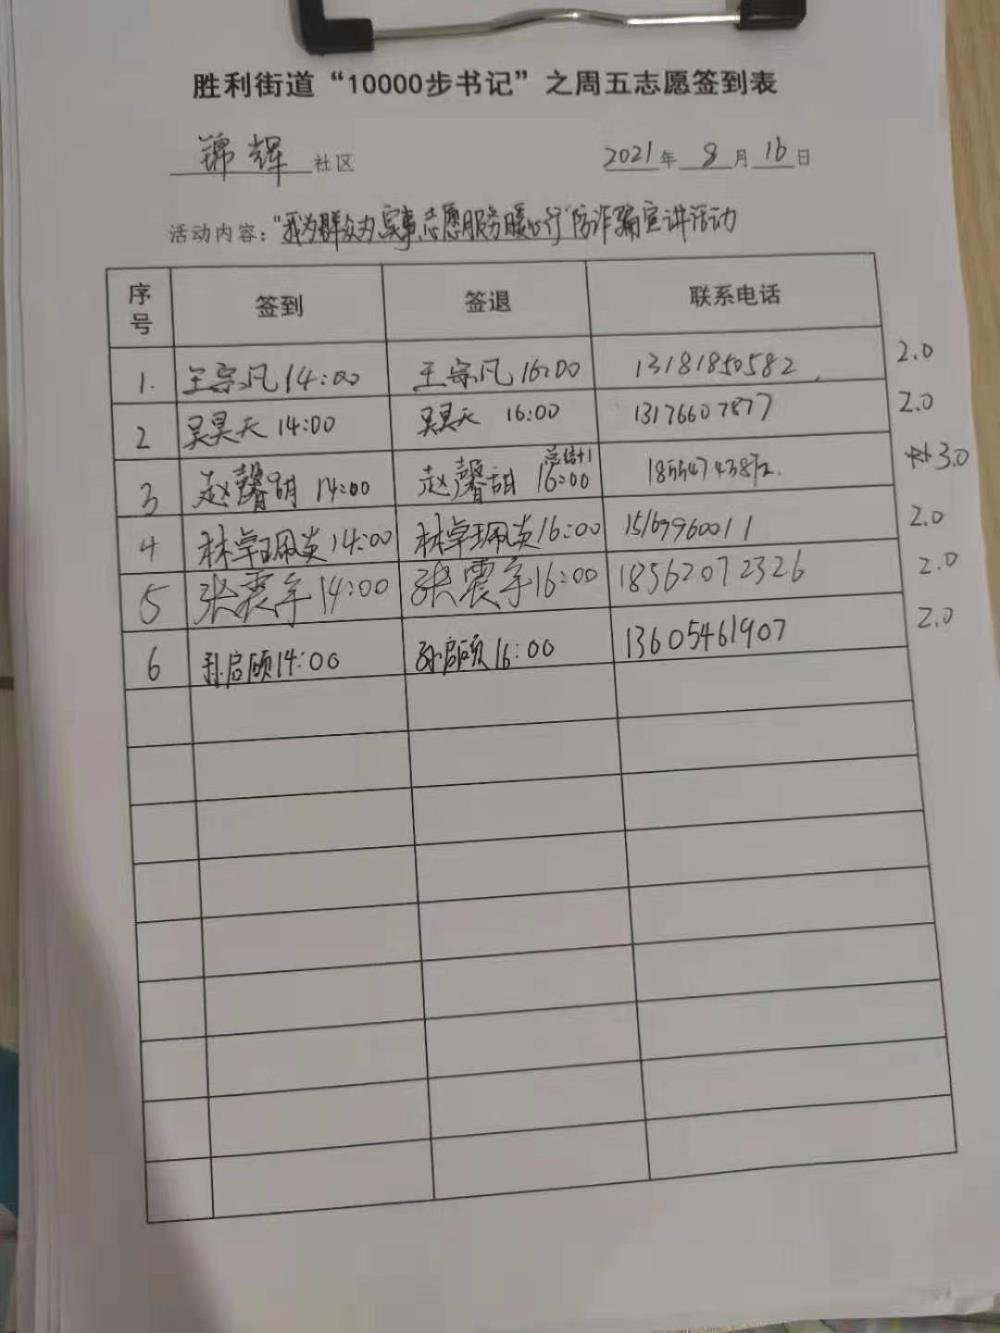 胜利街道“10000步书记”之周五志愿签到表
锦辉社区 2021年8月16日
活动内容：“我为群众办实事,志愿服务暖心行”防诈骗宣讲活动
序号 签到 签退 联系电话
1. 王宗凡 14:00 王宗凡 16:00 13181850582 2.0
2 吴昊天 14:00 吴昊天 16:00 13176607877 2.0
总结+1
3 赵馨甜 14:00 赵馨甜 16:00 3.0
4 林卓珮炎 14:00 林卓珮炎 16:00 15169960011 2.0
5 张震宇 14:00 张震宇 16:00 18562072326 2.0
6 孙启颐 14:00 孙启颐 16:00 13605461907 2.0